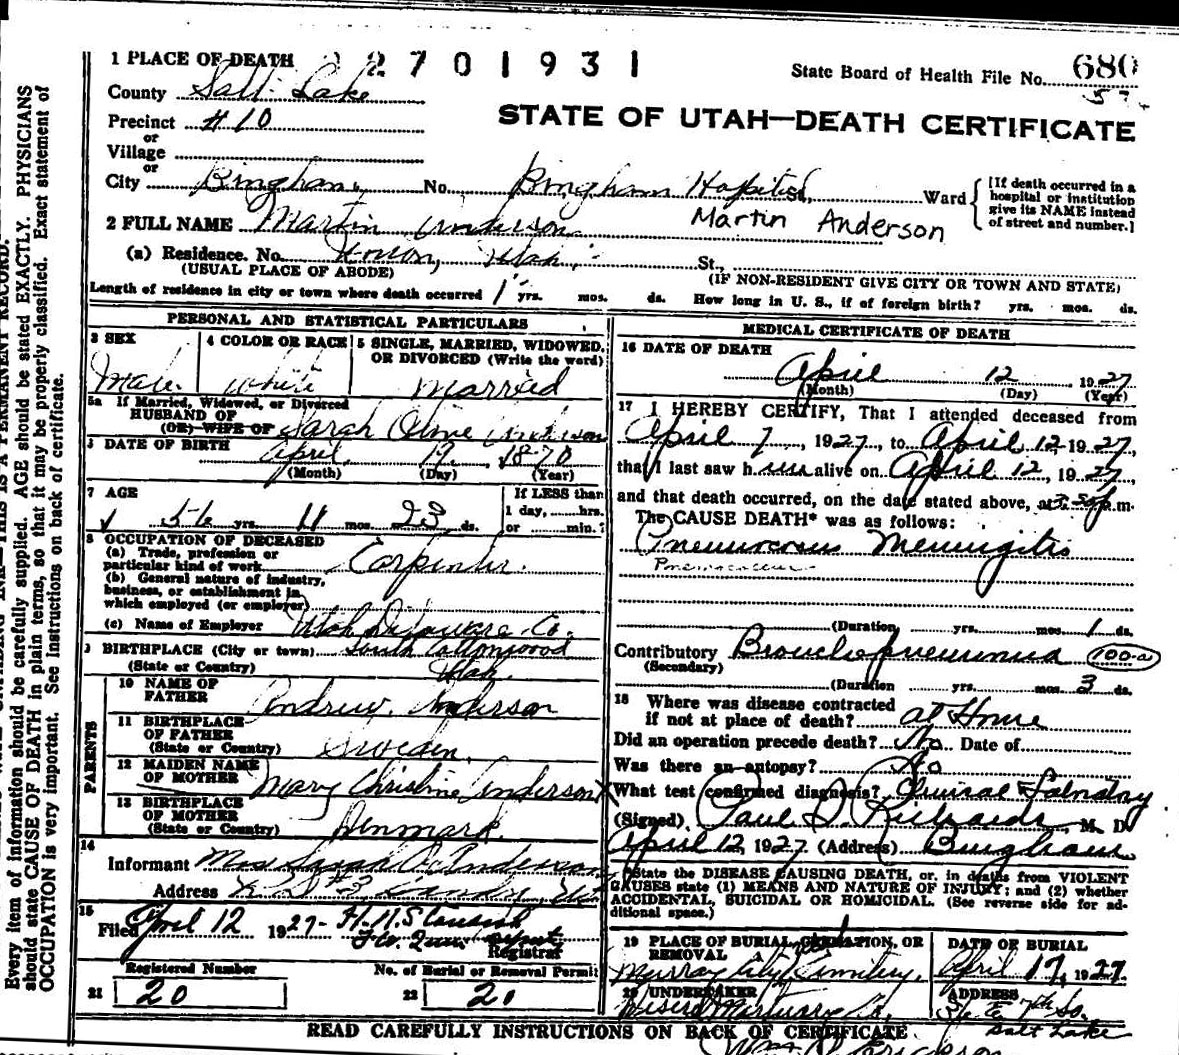 1 PLACE OF DEATH 2 7 0 1 9 3 1
State Board of Health File No. 680
County Salt Lake
57
Precinct #10
STATE OF UTAH—DEATH CERTIFICATE
or
Village
or
City Bingham, No. Bingham Hospital, Ward
[If death occurred in a
hospital or institution
give its NAME instead
of street and number.]
2 FULL NAME Martin Anderson Martin Anderson
(a) Residence. No. Utah. St.,
(USUAL PLACE OF ABODE) (IF NON-RESIDENT GIVE CITY OR TOWN AND STATE)
Length of residence in city or town where death occurred 1 yrs. mos. ds. How long in U. S., if of foreign birth? yrs. mos. ds.
PERSONAL AND STATISTICAL PARTICULARS
3 SEX
Male.
4 COLOR OR RACE
White
5 SINGLE, MARRIED, WIDOWED,
OR DIVORCED (Write the word)
Married
5a If Married, Widowed, or Divorced
HUSBAND OF
(OR) WIFE OF Sarah Olive Anderson
DATE OF BIRTH April 19, 1870
(Month) (Day) (Year)
7 AGE
56 yrs. 11 mos. 23 ds.
If LESS than
1 day, hrs.
or min.?
8 OCCUPATION OF DECEASED
(a) Trade, profession or
particular kind of work Carpenter.
(b) General nature of industry,
business, or establishment in
which employed (or employer)
(c) Name of Employer Utah Delaware Co.
9 BIRTHPLACE (City or town) South Cottonwood
(State or Country) Utah.
PARENTS
10 NAME OF
FATHER Andrew Anderson
11 BIRTHPLACE
OF FATHER
(State or Country) Sweden.
12 MAIDEN NAME
OF MOTHER Mary Christine Anderson
13 BIRTHPLACE
OF MOTHER
(State or Country) Denmark.
14
Informant Mrs Sarah O. Anderson
Address R D #3 Sandy, Utah
15
Filed April 12 1927-
Registrar
Registered Number
21 20
No. of Burial or Removal Permit
22 20
MEDICAL CERTIFICATE OF DEATH
16 DATE OF DEATH
April 12 1927
(Month) (Day) (Year)
17 I HEREBY CERTIFY, That I attended deceased from
April 7, 1927, to April 12 1927,
that I last saw him alive on April 12, 1927,
and that death occurred, on the date stated above, at 3:50 p.m.
The CAUSE DEATH* was as follows:
Pneumococcus Meningitis
Pneumococcus
(Duration yrs. mos. 1 ds.
Contributory Bronchopneumonia 100-a
(Secondary)
(Duration yrs. mos. 3 ds.
18 Where was disease contracted
if not at place of death? at Home
Did an operation precede death? No Date of
Was there an autopsy? No
What test confirmed diagnosis?
(Signed) Paul S. Richards, M. D.
April 12, 1927 (Address) Bingham
*State the DISEASE CAUSING DEATH, or, in deaths from VIOLENT
CAUSES state (1) MEANS AND NATURE OF INJURY; and (2) whether
ACCIDENTAL, SUICIDAL OR HOMICIDAL. (See reverse side for ad-
ditional space.)
19 PLACE OF BURIAL, CREMATION, OR
REMOVAL
Murray City Cemetery.
DATE OF BURIAL
April 17, 1927.
20 UNDERTAKER
Mortuary Co.
ADDRESS
36 E 7th So.
Salt Lake
READ CAREFULLY INSTRUCTIONS ON BACK OF CERTIFICATE
Every item of information should be carefully supplied. AGE should be stated EXACTLY. PHYSICIANS
should state CAUSE OF DEATH in plain terms, so that it may be properly classified. Exact statement of
OCCUPATION is very important. See instructions on back of certificate.
THIS IS A PERMANENT RECORD.